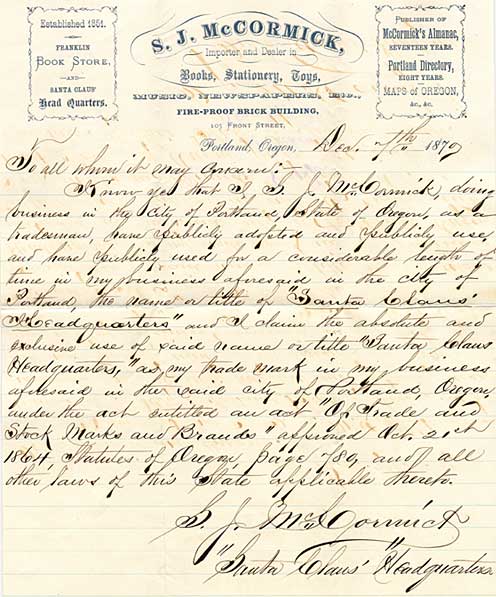 Established 1851.
FRANKLIN
BOOK STORE,
—AND—
SANTA CLAUS'
Head Quarters.
S. J. McCORMICK,
Importer and Dealer in
Books, Stationery, Toys,
MUSIC, NEWSPAPERS, Etc.,
FIRE-PROOF BRICK BUILDING,
105 FRONT STREET,
PUBLISHER OF
McCormick's Almanac,
SEVENTEEN YEARS.
Portland Directory,
EIGHT YEARS.
MAPS OF OREGON,
&c., &c.
Portland, Oregon, Dec. 7th 1879
To all whom it may concern:—
Know ye that I S. J. McCormick, doing
business in the city of Portland, State of Oregon, as a
tradesman, have publicly adopted and publicly use,
and have publicly used for a considerable length of
time in my business aforesaid in the city of
Portland, the name or title of "Santa Claus'
Headquarters" and I claim the absolute and
exclusive use of said name or title "Santa Claus
Headquarters," as my trade mark in my business
aforesaid in the said city of Portland, Oregon,
under the act entitled an act "Of Trade and
Stock Marks and Brands" approved Oct. 21st
1864, Statutes of Oregon page 780, and all
other laws of this State applicable thereto.
S. J. McCormick
"Santa Claus' Headquarters